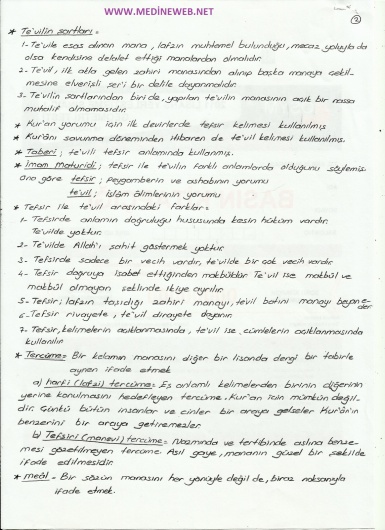 www.MEDİNEWEB.NET
2
* Te'vilin şartları:
1- Te'vile esas alınan mana, lafzın muhtemel bulunduğu, mecaz yoluyla da
olsa kendisine delalet ettiği manalardan olmalıdır.
2- Te'vil; ilk akla gelen zahiri manasından alınıp başka manaya çekil-
mesine elverişli şer'i bir delile dayanmalıdır.
3- Te'vilin şartlarından biri de, yapılan te'vilin manasının açık bir nassa
muhalif olmamasıdır.
* Kur'an yorumu için ilk devirlerde tefsir kelimesi kullanılmış
* Kur'ânı savunma döneminden itibaren de te'vil kelimesi kullanılmış.
* Taberi; te'vili tefsir anlamında kullanmış.
* İmam Maturidi; tefsir ile te'vilin farklı anlamlarda olduğunu söylemiş.
ona göre tefsir; peygamberin ve ashabının yorumu
te'vil; İslâm âlimlerinin yorumu
* Tefsir ile te'vil arasındaki farklar=
1- Tefsirde anlamın doğruluğu hususunda kesin hüküm vardır.
Te'vilde yoktur.
2- Te'vilde Allah'ı şahit göstermek yoktur.
3- Tefsirde sadece bir vecih vardır, te'vilde bir çok vecih vardır.
4- Tefsir doğruya isabet ettiğinden makbuldür. Te'vil ise makbul ve
makbul olmayan şeklinde ikiye ayrılır.
5- Tefsir; lafzın taşıdığı zahiri manayı, te'vil batini manayı beyan e-
der
6- Tefsir rivayete, te'vil dirayete dayanır.
7- Tefsir, kelimelerin açıklanmasında, te'vil ise cümlelerin açıklanmasında
kullanılır
* Tercüme= Bir kelamın manasını diğer bir lisanda dengi bir tabirle
aynen ifade etmek
a) harfi (lafzi) tercüme= Eş anlamlı kelimelerden birinin diğerinin
yerine konulmasını hedefleyen tercüme. Kur'an için mümkün değil-
dir. Çünkü bütün insanlar ve cinler bir araya gelseler Kur'ân'ın
benzerini bir araya getiremezler.
b) Tefsiri (manevi) tercüme= Nazmında ve tertibinde aslına benze-
mesi gözetilmeyen tercüme. Asıl gaye, mananın güzel bir şekilde
ifade edilmesidir.
* meâl= Bir sözün manasını her yönüyle değil de, biraz noksanıyla
ifade etmek.